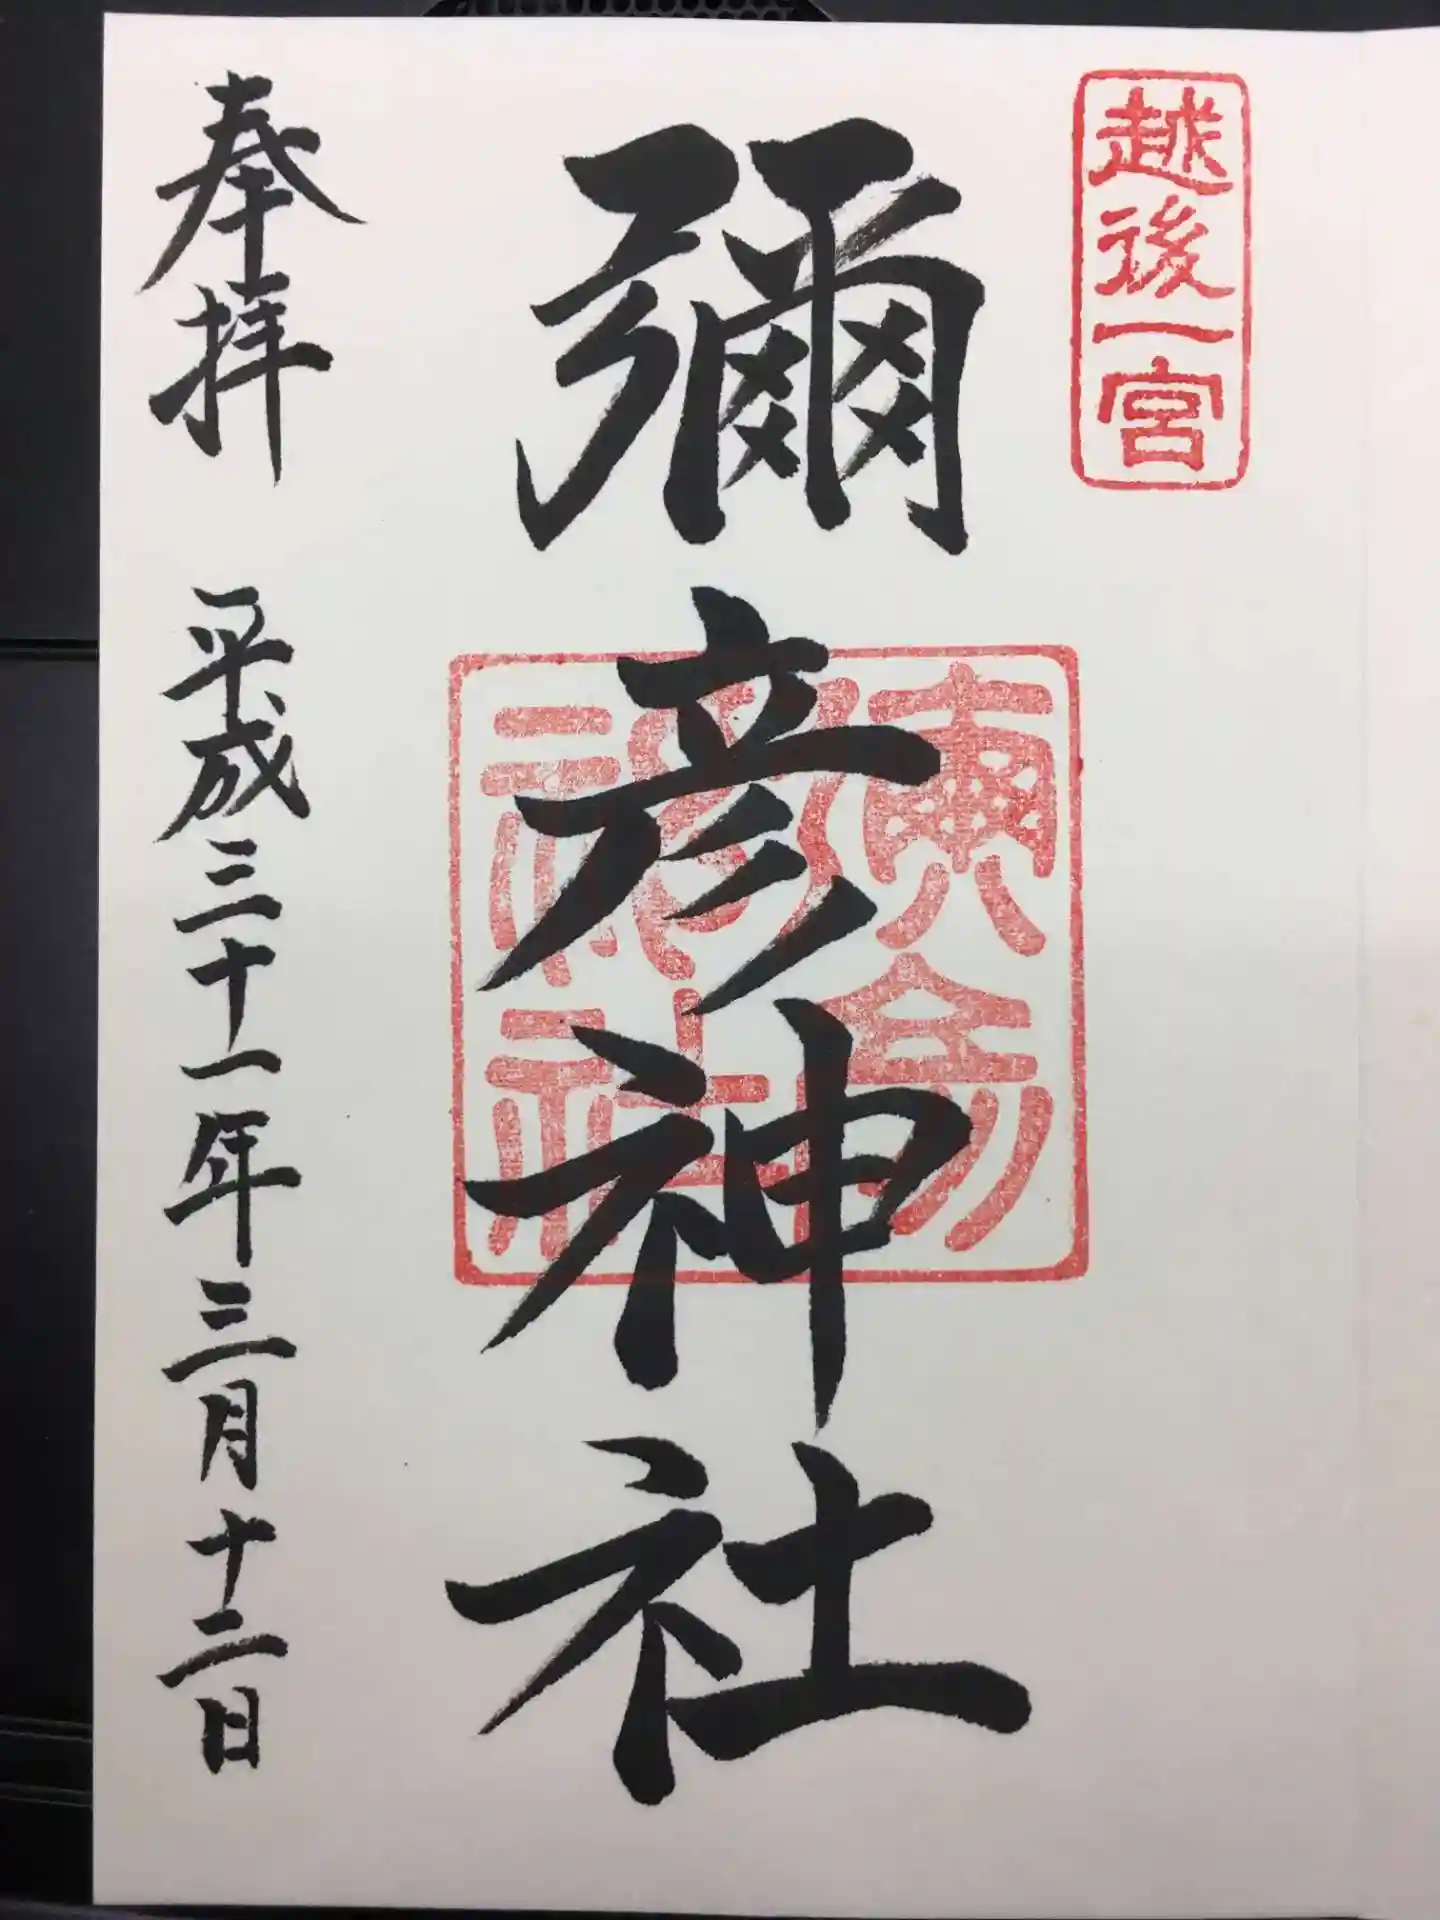 越後一宮
彌彦神社
奉拝 平成三十一年三月十二日